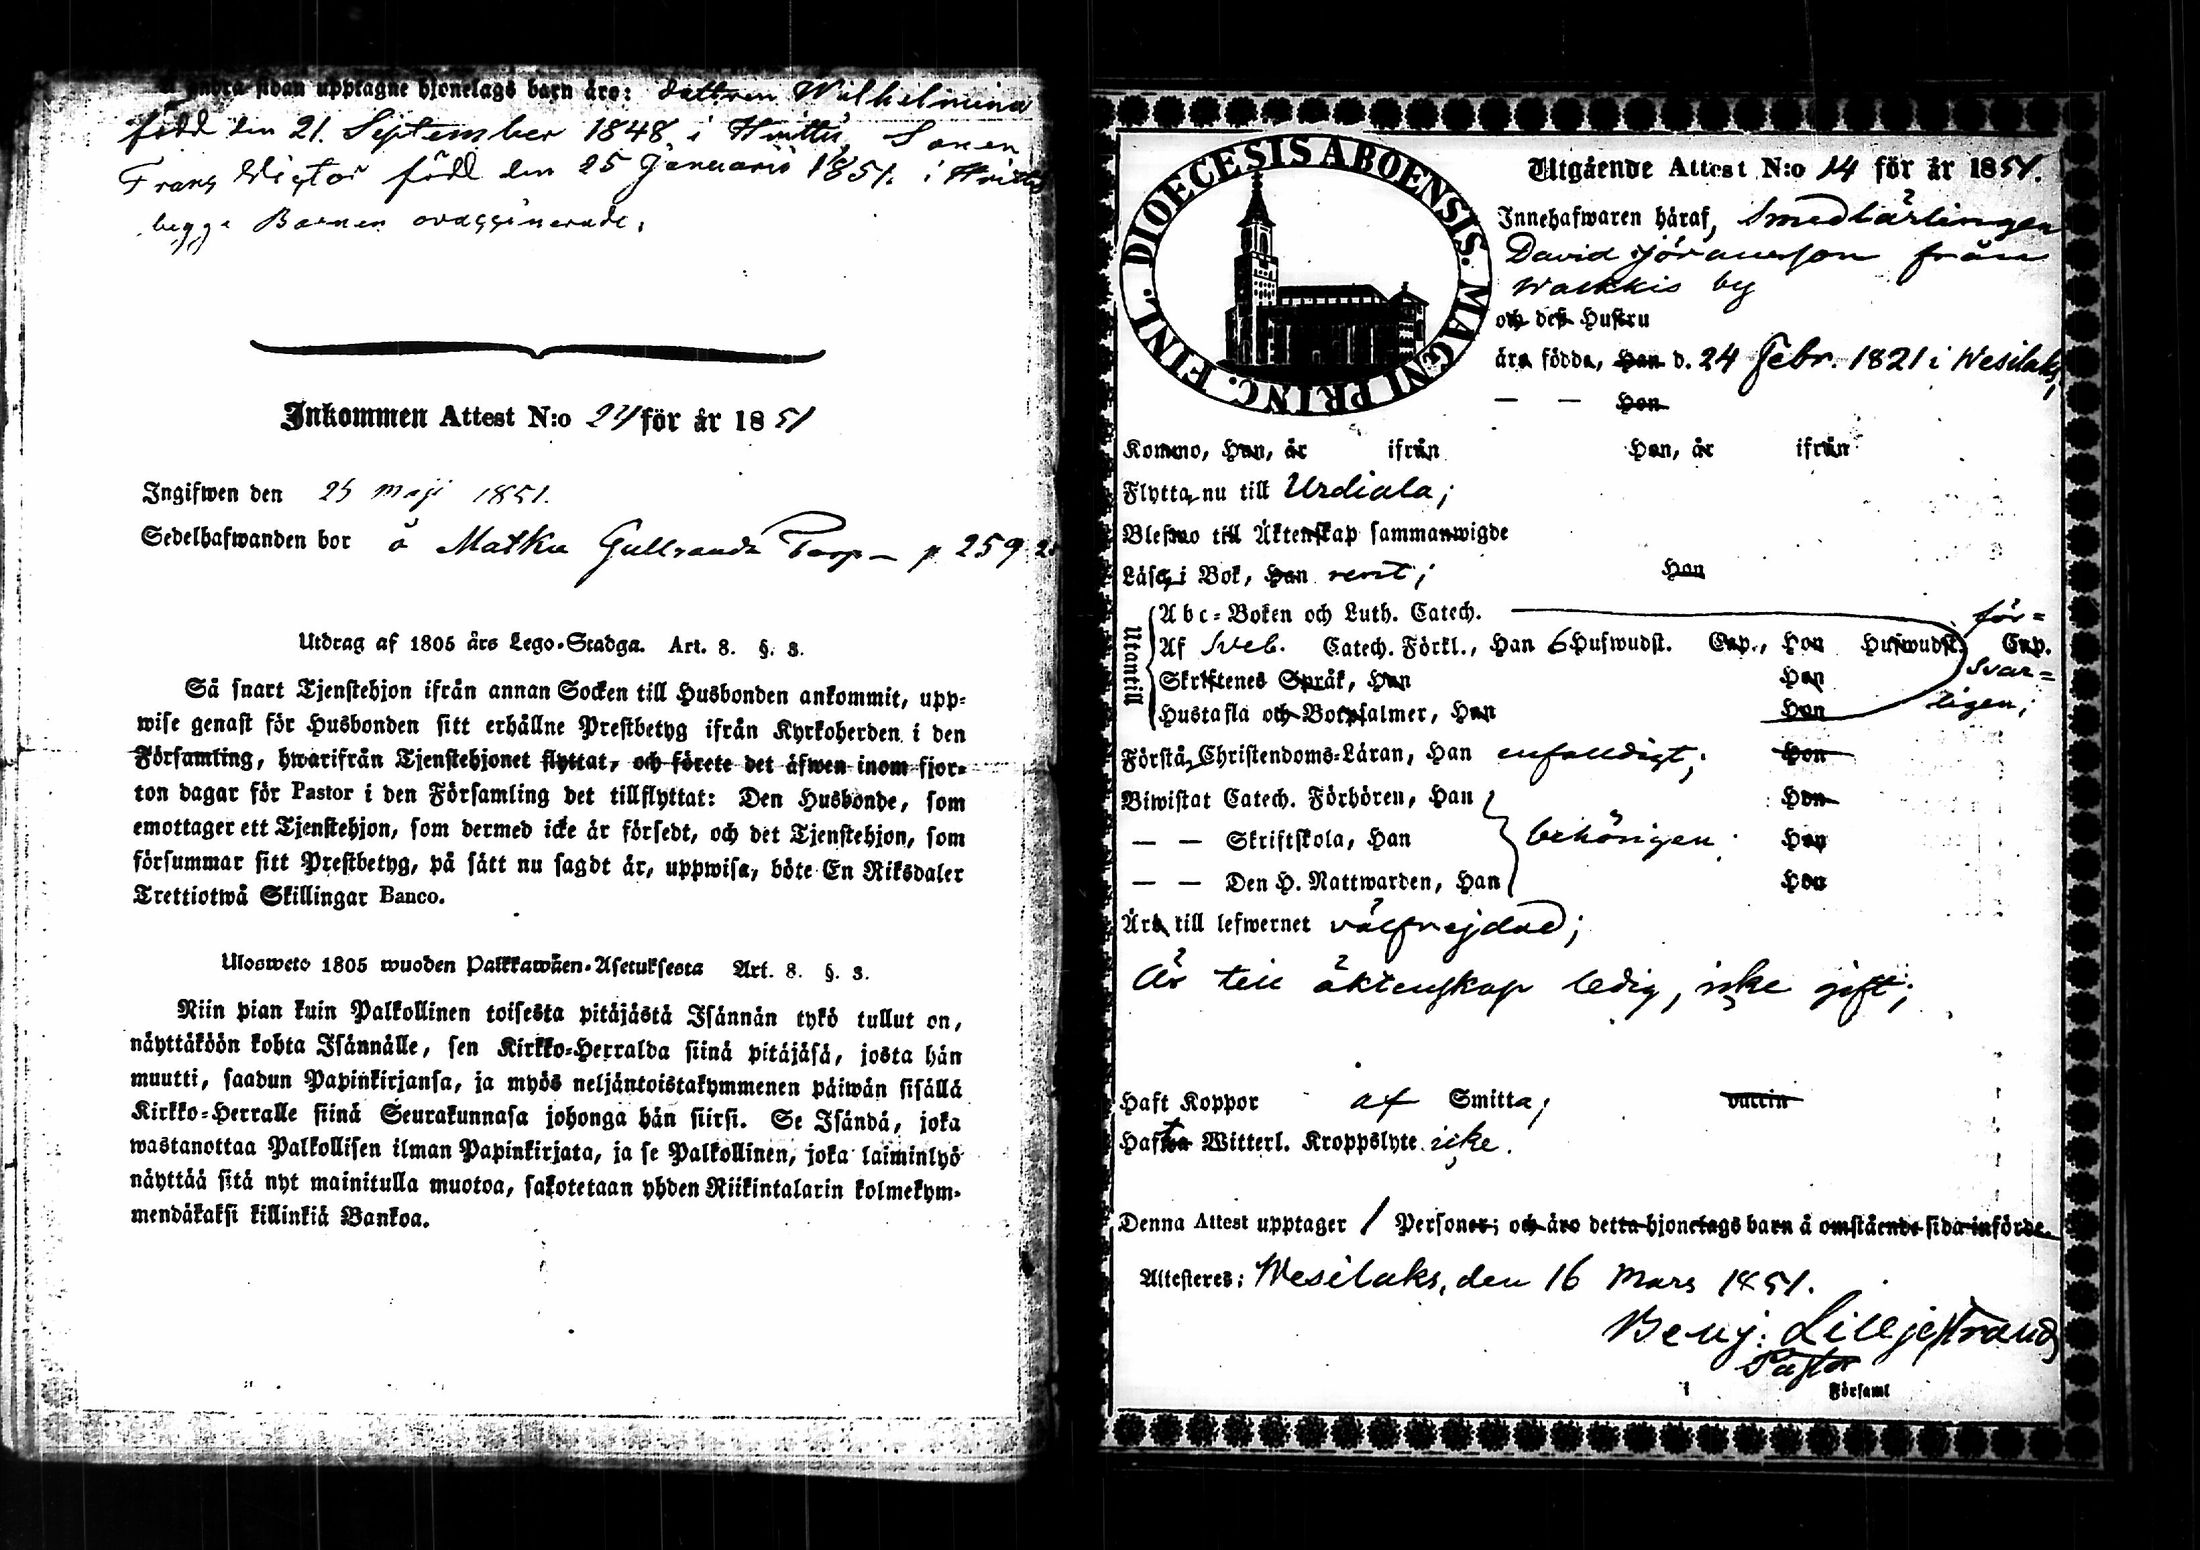 å andra sidan upptagne hjonelags barn äro: dottren Wilhelmina
född den 21. September 1848 i Huittis, Sonen
Frans Wictor född den 25 Januarii 1851. i Huittis
begge Barnen ovaccinerade.
Inkommen Attest N:o 24 för år 1851
Ingifwen den 25 maji 1851.
Sedelhafwanden bor å Matku Gullrands Torp – p 259
Utdrag af 1805 års Lego-Stadga. Art. 8. §. 3.
Så snart Tjenstehjon ifrån annan Socken till Husbonden ankommit, upp-
wise genast för Husbonden sitt erhållne Prestbetyg ifrån Kyrkoherden i den
Församling, hwarifrån Tjenstehjonet flyttat, och förete det äfwen inom fjor-
ton dagar för Pastor i den Församling det tillflyttat: Den Husbonde, som
emottager ett Tjenstehjon, som dermed icke är försedt, och det Tjenstehjon, som
försummar sitt Prestbetyg, på sätt nu sagdt är, uppwisa, böte En Riksdaler
Trettiotwå Skillingar Banco.
Ulosweto 1805 wuoden Palkkawäen-Asetuksesta Art. 8. §. 3.
Niin pian kuin Palkollinen toisesta pitäjästä Isännän tykö tullut on,
näyttäköön kohta Isännälle, sen Kirkko-Herralda siinä pitäjäsä, josta hän
muutti, saadun Papinkirjansa, ja myös neljäntoistakymmenen päiwän sisällä
Kirkko-Herralle siinä Seurakunnasa johonga hän siirsi. Se Isändä, joka
wastanottaa Palkollisen ilman Papinkirjata, ja se Palkollinen, joka laiminlyö
näyttää sitä nyt mainitulla muotoa, sakotetaan yhden Riikintalarin kolmekym-
mendäkaksi killinkiä Bankoa.
DIOECESIS ABOENSIS. MAGNI PRINC. FINL.
Utgående Attest N:o 14 för år 1851.
Innehafwaren häraf, Smedlärlingen
David Jöransson från
Wackkis by
och dess Hustru
äro födda, Han d. 24 Febr. 1821 i Wesilaks,
— — Hon
Kommo, Han, år ifrån Hon, år ifrån
Flytta nu till Urdiala;
Blefwo till Äktenskap sammanwigde
Läsa i Bok, Han rent; Hon
Utantill
Abc-Boken och Luth. Catech. för-
Af Sveb. Catech. Förkl., Han 6 Hufwudst. Cap., Hon Hufwudst. Cap.
svar-
Skriftenes Språk, Han Hon
ligen;
Hustafla och Botpsalmer, Han Hon
Förstå Christendoms-Läran, Han enfalldigt; Hon
Biwistat Catech. Förhören, Han Hon
— — Skriftskola, Han behörigen; Hon
— — Den H. Nattwarden, Han Hon
Äro till lefwernet välfrejdad;
Är till äktenskap ledig, icke gift;
Haft Koppor af Smitta; vaccin
Hafwa Witterl. Kroppslyte icke.
Denna Attest upptager 1 Personer; och äro detta hjonelags barn å omstående sida införde.
Attesteres: Wesilaks, den 16 Mars 1851.
Benj: Lilljestrand
Pastor
i Församl